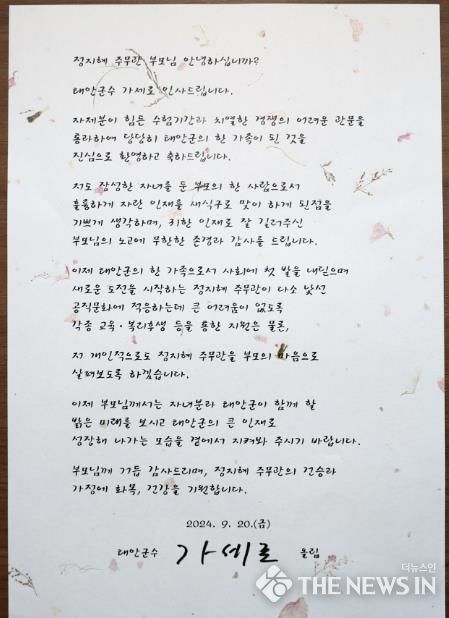 정지혜 주무관 부모님 안녕하십니까?
태안군수 가세로 인사드립니다.
자제분이 힘든 수험기간과 치열한 경쟁의 어려운 관문을
통과하여 당당히 태안군의 한 가족이 된 것을
진심으로 환영하고 축하드립니다.
저도 장성한 자녀를 둔 부모의 한 사람으로서
훌륭하게 자란 인재를 새식구로 맞이 하게 된점을
기쁘게 생각하며, 귀한 인재로 잘 길러주신
부모님의 노고에 무한한 존경과 감사를 드립니다.
이제 태안군의 한 가족으로서 사회에 첫 발을 내딛으며
새로운 도전을 시작하는 정지혜 주무관이 다소 낯선
공직문화에 적응하는데 큰 어려움이 없도록
각종 교육·복리후생 등을 통한 지원은 물론,
저 개인적으로도 정지혜 주무관을 부모의 마음으로
살펴보도록 하겠습니다.
이제 부모님께서는 자녀분과 태안군이 함께 할
밝은 미래를 보시고 태안군의 큰 인재로
성장해 나가는 모습을 곁에서 지켜봐 주시기 바랍니다.
부모님께 거듭 감사드리며, 정지혜 주무관의 건승과
가정에 화목, 건강을 기원합니다.
2024. 9. 20.(금)
태안군수 가세로 올림
더뉴스인
THE NEWS IN